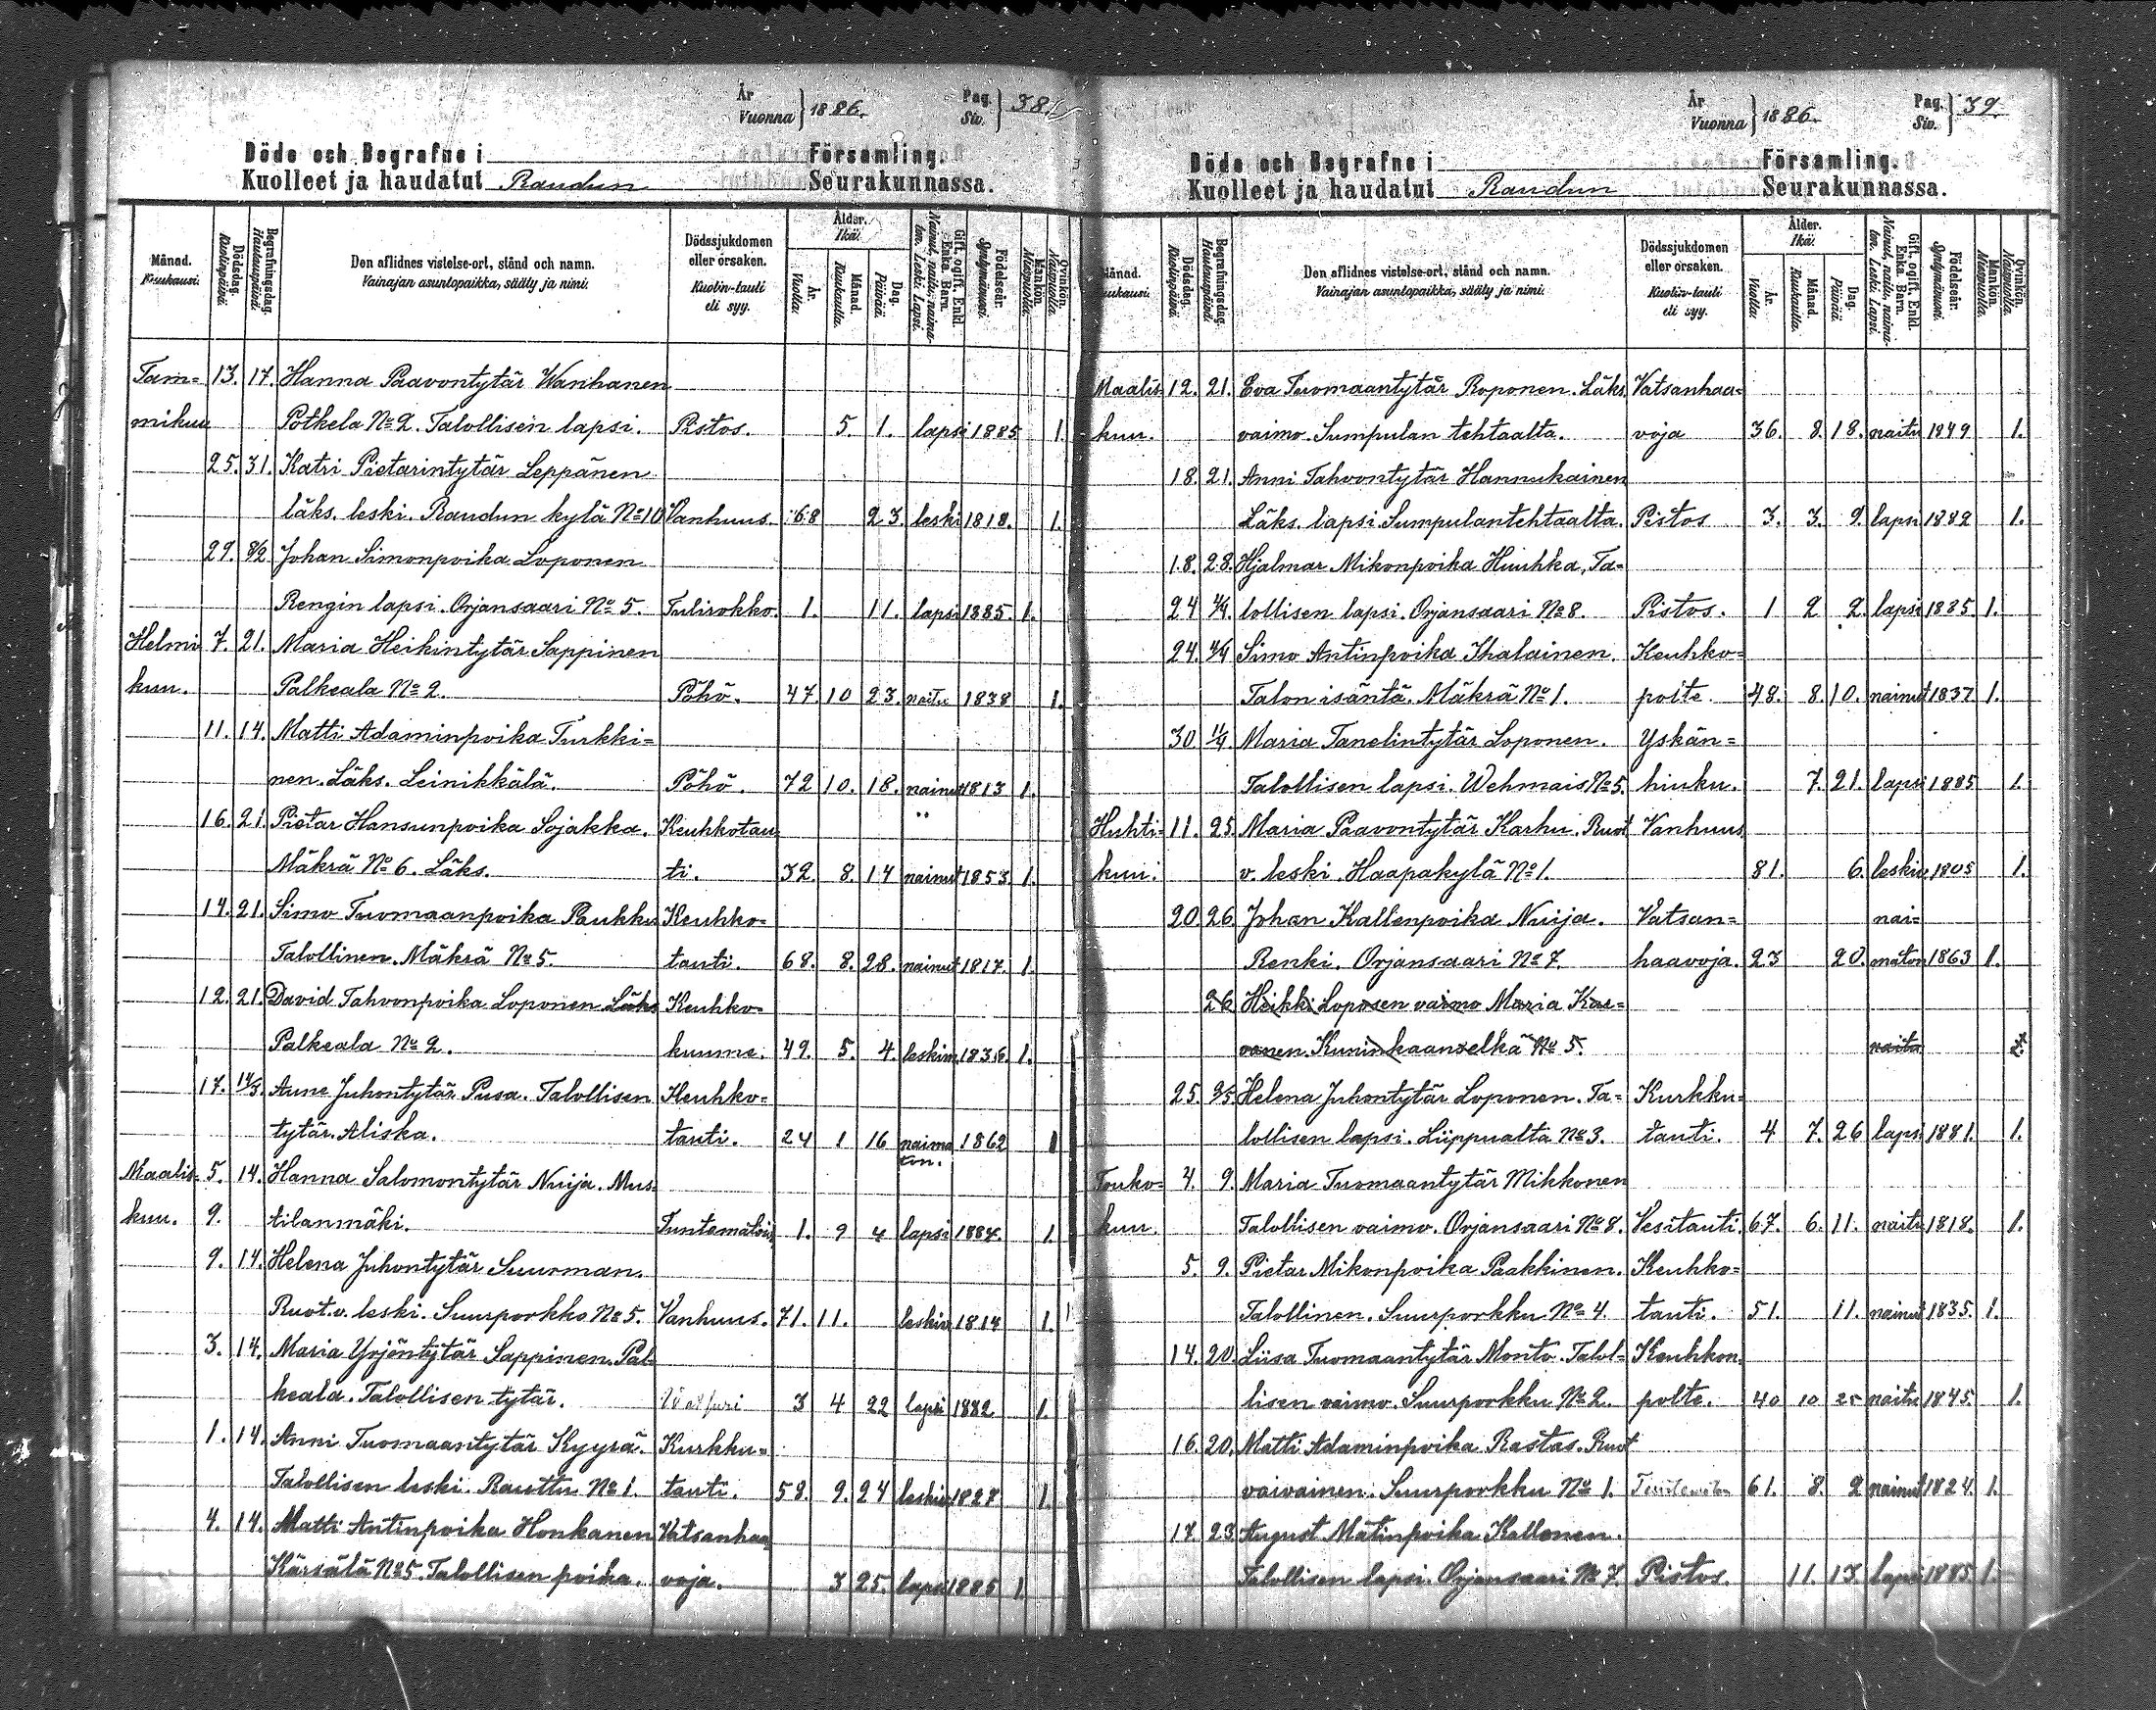 År
Vuonna } 1886.
Pag.
Siv. } 38.
Döde och Begrafne i Församling.
Kuolleet ja haudatut Raudun Seurakunnassa.
Månad. Kuukausi. Dödsdag. Kuolinpäivä. Begrafningsdag. Hautauspäivä. Den aflidnes vistelse-ort, stånd och namn. Vainajan asuntopaikka, sääty ja nimi. Dödssjukdomen eller orsaken. Kuolin-tauti eli syy. Ålder. Ikä. År. Vuotta. Månad. Kuukautta. Dag. Päivää. Gift, ogift, Enkl. Enka. Barn. Nainut, naitu, naimaton. Leski. Lapsi. Födelseår. Syntymävuosi. Mankön. Miespuolia. Qvinkön. Naispuolia.
Tam= 13. 17. Hanna Paavontytär Wanhanen
mikuu Potkela No 2. Talollisen lapsi. Pistos. 5. 1. lapsi 1885 1.
25. 31. Katri Pietarintytär Leppänen
läks. leski. Raudun kylä No 10 Vanhuus. 68 23. leski 1818. 1.
29. 8/2 Johan Simonpoika Loponen
Rengin lapsi. Orjansaari No 5. Tulirokko. 1. 11. lapsi 1885. 1.
Helmi 7. 21. Maria Heikintytär Sappinen
kuu. Palkeala No 2. Pöhö. 47. 10 23. naitu 1838 1.
11. 14. Matti Adaminpoika Turkki=
nen. Läks. Leinikkälä. Pöhö. 72 10. 18. nainut 1813 1.
16. 21. Pietar Hansunpoika Sojakka. Keuhkotau
Mäkrä No 6. Läks. ti. 32. 8. 14 nainut 1853 1.
14. 21. Simo Tuomaanpoika Paukku Keuhko=
Talollinen. Mäkrä No 5. tauti. 68. 8. 28. nainut 1817. 1.
12. 21. David Tahvonpoika Loponen Läks Keuhko=
Palkeala No 2. kuume. 49. 5. 4. leskim. 1836. 1.
17. 14/3. Anne Juhontytär Pusa. Talollisen Keuhko=
tytär. Aliska. tauti. 24 1 16 naima 1862 1
ton.
Maalis= 5. 14. Hanna Salomontytär Nuija. Mus=
kuu. 9. tilanmäki. Tuntematoin 1. 9 4 lapsi 1884. 1.
9. 14. Helena Juhontytär Suurman.
Ruot. v. leski. Suurporkko No 5. Vanhuus. 71. 11. leskiv 1814 1.
3. 14. Maria Yrjöntytär Sappinen. Pal=
keala. Talollisen tytär. 3 4 22 lapsi 1882 1.
1. 14. Anni Tuomaantytär Kyyrä. Kurkku=
Talollisen leski. Rauttu No 1. tauti. 58. 9. 24 leskiv 1827 1.
4. 14. Matti Antinpoika Honkanen Vatsanhaa
Kärsälä No 5. Talollisen poika. voja. 3 25. lapsi 1885 1.
År
Vuonna } 1886.
Pag.
Siv. } 39.
Döde och Begrafne i Församling.
Kuolleet ja haudatut Raudun Seurakunnassa.
Månad. Kuukausi. Dödsdag. Kuolinpäivä. Begrafningsdag. Hautauspäivä. Den aflidnes vistelse-ort, stånd och namn. Vainajan asuntopaikka, sääty ja nimi. Dödssjukdomen eller orsaken. Kuolin-tauti eli syy. Ålder. Ikä. År. Vuotta. Månad. Kuukautta. Dag. Päivää. Gift, ogift, Enkl. Enka. Barn. Nainut, naitu, naimaton. Leski. Lapsi. Födelseår. Syntymävuosi. Mankön. Miespuolia. Qvinkön. Naispuolia.
Maalis 12. 21. Eva Tuomaantytär Roponen. Läks Vatsanhaa=
kuu. vaimo. Sumpulan tehtaalta. voja 36. 8. 18. naitu 1849 1.
18. 21. Anni Tahvontytär Hannukainen
Läks. lapsi. Sumpulantehtaalta. Pistos 3. 3. 9. lapsi 1882 1.
18. 28. Hjalmar Mikonpoika Huuhka, Ta=
24 4/4. lollisen lapsi. Orjansaari No 8. Pistos. 1 2 2. lapsi 1885 1.
24. 4/4 Simo Antinpoika Ihalainen. Keuhko=
Talon isäntä. Mäkrä No 1. polte. 48. 8. 10. nainut 1837 1.
30 11/4. Maria Tanelintytär Loponen. Yskän=
Talollisen lapsi. Wehmais No 5. hinku. 7. 21. lapsi 1885 1.
Huhti= 11. 25. Maria Paavontytär Karhu. Ruot Vanhuus
kuu. v. leski. Haapakylä No 1. 81. 6. leskiv 1805 1.
20. 26. Johan Kallenpoika Nuija. Vatsan= nai=
Renki. Orjansaari No 7. haavoja. 23 20. maton 1863 1.
26 Heikki Loposen vaimo Maria Kar=
vanen. Kuninkaanselkä No 5. naitu
25. 2/5. Helena Juhontytär Loponen. Ta= Kurkku=
lollisen lapsi. Liippualta No 3. tauti. 4 7. 26 lapsi 1881. 1.
Touko= 4. 9. Maria Tuomaantytär Mikkonen
kuu. Talollisen vaimo. Orjansaari No 8. Vesitauti. 67. 6. 11. naitu 1818. 1.
5. 9. Pietar Mikonpoika Paakkinen. Keuhko=
Talollinen. Suurporkku No 4. tauti. 51. 11. nainut 1835. 1.
14. 20. Liisa Tuomaantytär Monto. Talol= Keuhkon
lisen vaimo. Suurporkku No 2. polte. 40 10 25 naitu 1845. 1.
16. 20. Matti Adaminpoika Rastas. Ruot
vaivainen. Suurporkku No 1. 61. 8. 2 nainut 1824. 1.
17. 23 August Matinpoika Kallonen.
Talollisen lapsi. Orjansaari No 7. Pistos. 11. 13. lapsi 1885. 1.